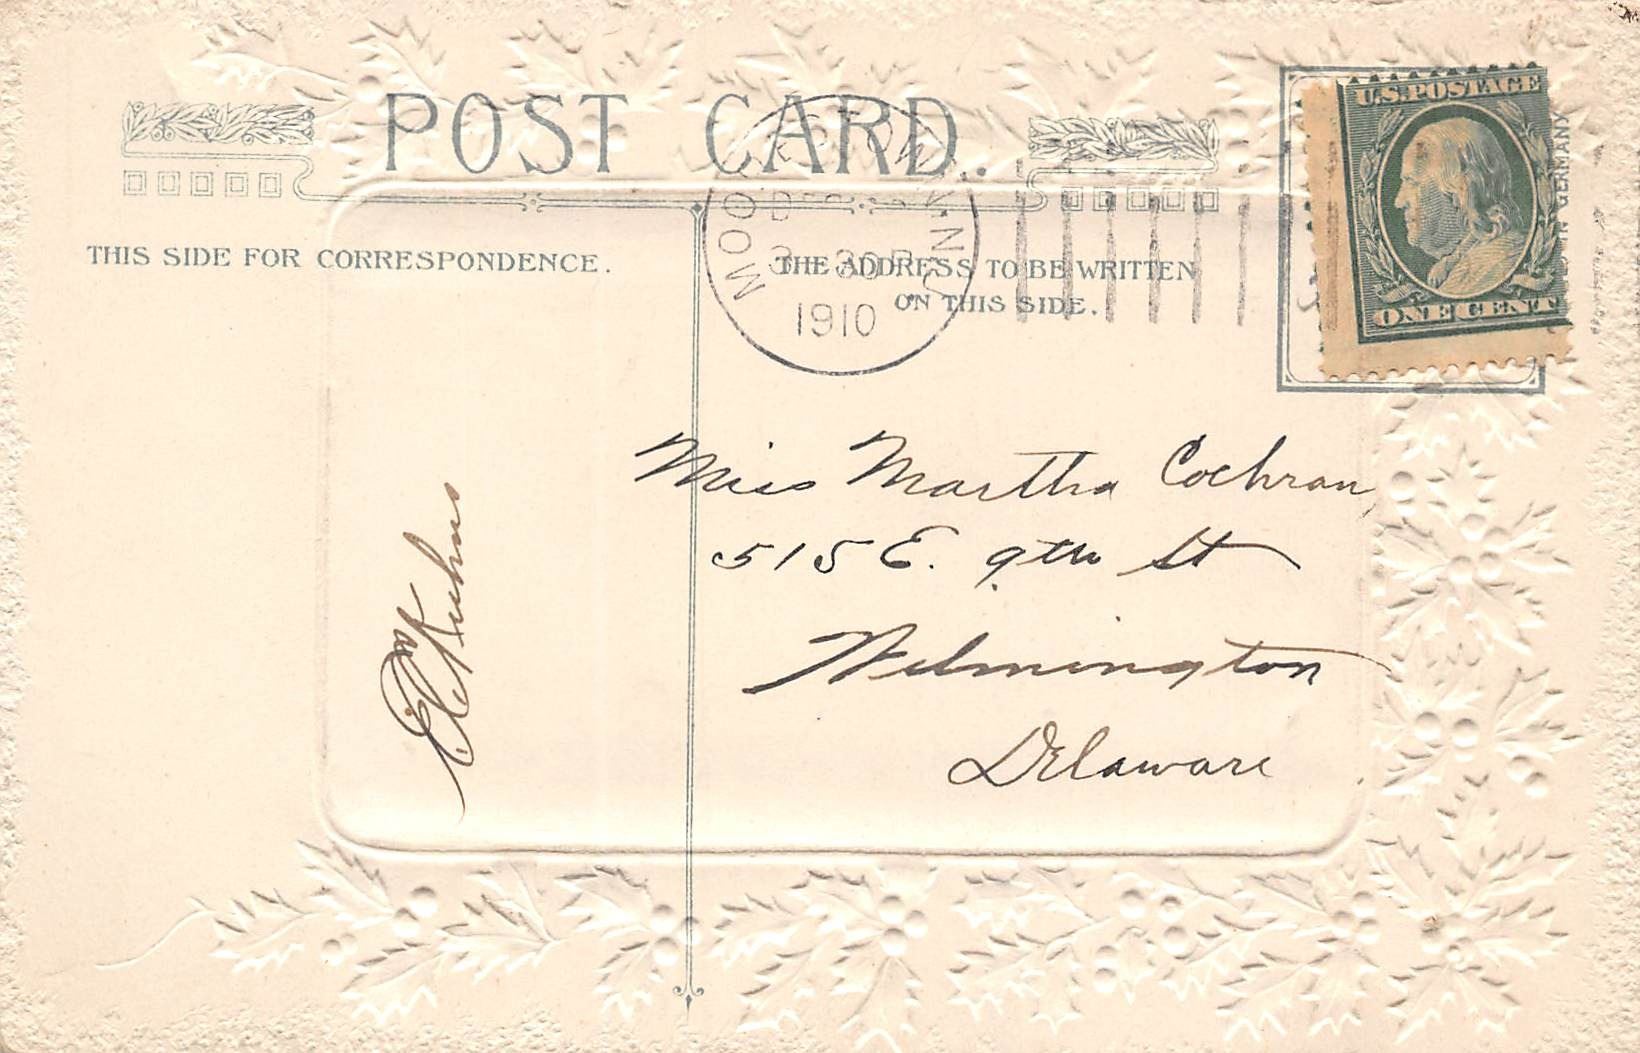 POST CARD.
THIS SIDE FOR CORRESPONDENCE.
THE ADDRESS TO BE WRITTEN
ON THIS SIDE.
MOO
N.J.
DEC
3-30P
1910
U.S. POSTAGE
ONE CENT
IN GERMANY
Miss Martha Cochran,
515 E. 9th St
Wilmington
Delaware
Kuhns